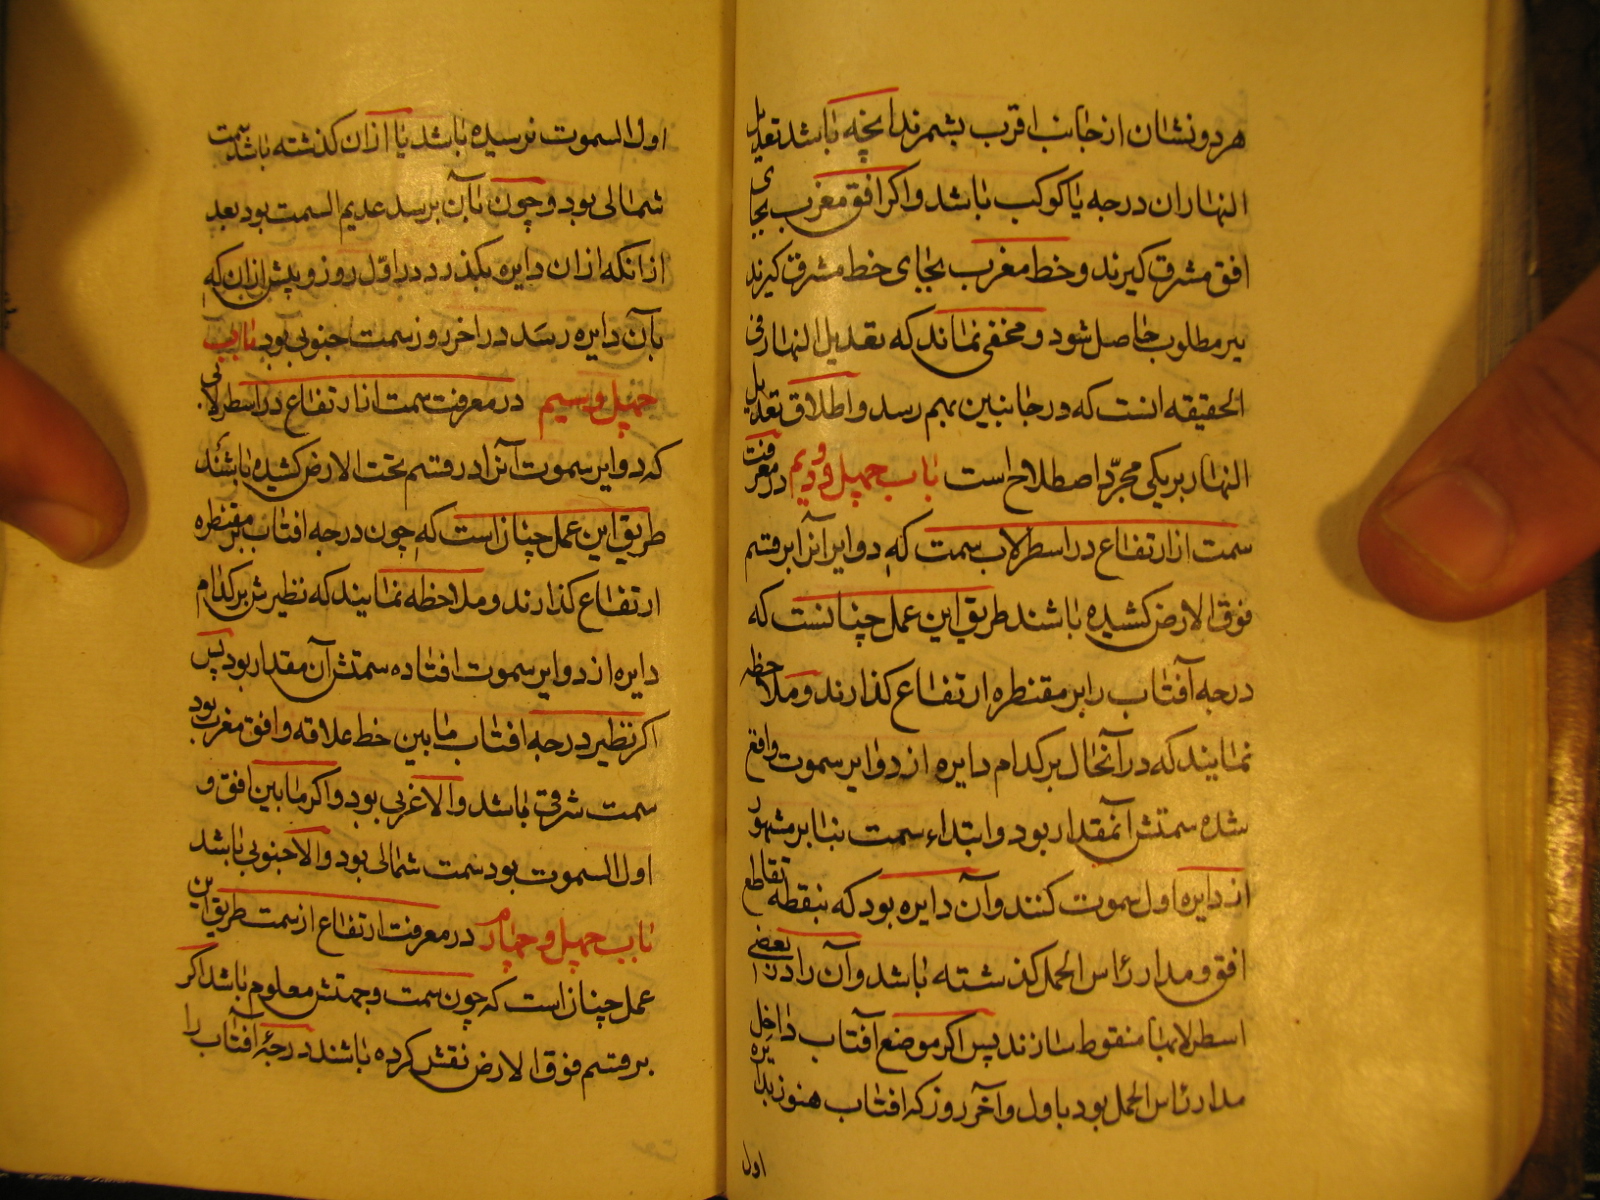 هر دو نشان از جانب اقرب بشمرند انچه باشد تعدیل
النهار ان درجه یا کوکب باشد و اکر افق مغرب بجای
افق مشرق کیرند و خط مغرب بجای خط مشرق کیرند
نیز مطلوب حاصل شود و مخفی نماند که تعدیل النهار فی
الحقیقه انست که در جانبین بهم رسد و اطلاق تعدیل
النهار بر یکی مجرّد اصطلاح است باب چهل و دویم در معرفت
سمت از ارتفاع در اسطرلاب سمت که دوایر آنرا بر قسم
فوق الارض کشیده باشند طریق این عمل چنانست که
درجه آفتاب را بر مقنطره ارتفاع کذارند و ملاحظه
نمایند که در آنحال بر کدام دایره از دوایر سموت واقع
شده سمتش آنمقدار بود و ابتداء سمت بنا بر مشهور
از دایره اول سموت کنند و آن دایره بود که بنقطه تقاطع
افق و مدار رأس الحمل کذشته باشد و آن را در بعضی
اسطرلابها منقوط سازند پس اکر موضع آفتاب داخل
مدار رأس الحمل بود باول و آخر روز که افتاب هنوز بدایره
اول
اول السموت نرسیده باشد یا ازان کذشته باشد سمت
شمالی بود و چون بآن برسد عدیم السمت بود بعد
از انکه ازان دایره بکذرد در اوّل روز و پیش ازان که
بآن دایره رسَد در اخر روز سمت جنوبی بود باب
چهل و سیم در معرفت سمت از ارتفاع در اسطرلابی
که دوایر سموت آنرا در قسم تحت الارض کشیده باشند
طریق این عمل چنان است که چون درجه افتاب بر مقنطره
ارتفاع کذارند و ملاحظه نمایند که نظیرش بر کدام
دایره از دوایر سموت افتاده سمتش آن مقدار بود پس
اکر نظیر درجه افتاب ما بین خط علاقه و افق مغرب بود
سمت شرقی باشد و الا غربی بود و اکر ما بین افق و
اول السموت بود سمت شمالی بود و الا جنوبی باشد
باب چهل و چهارم در معرفت ارتفاع از سمت طریق این
عمل چنان است که چون سمت و جهتش معلوم باشد اکر
بر قسم فوق الارض نقش کرده باشند درجهٔ افتاب را